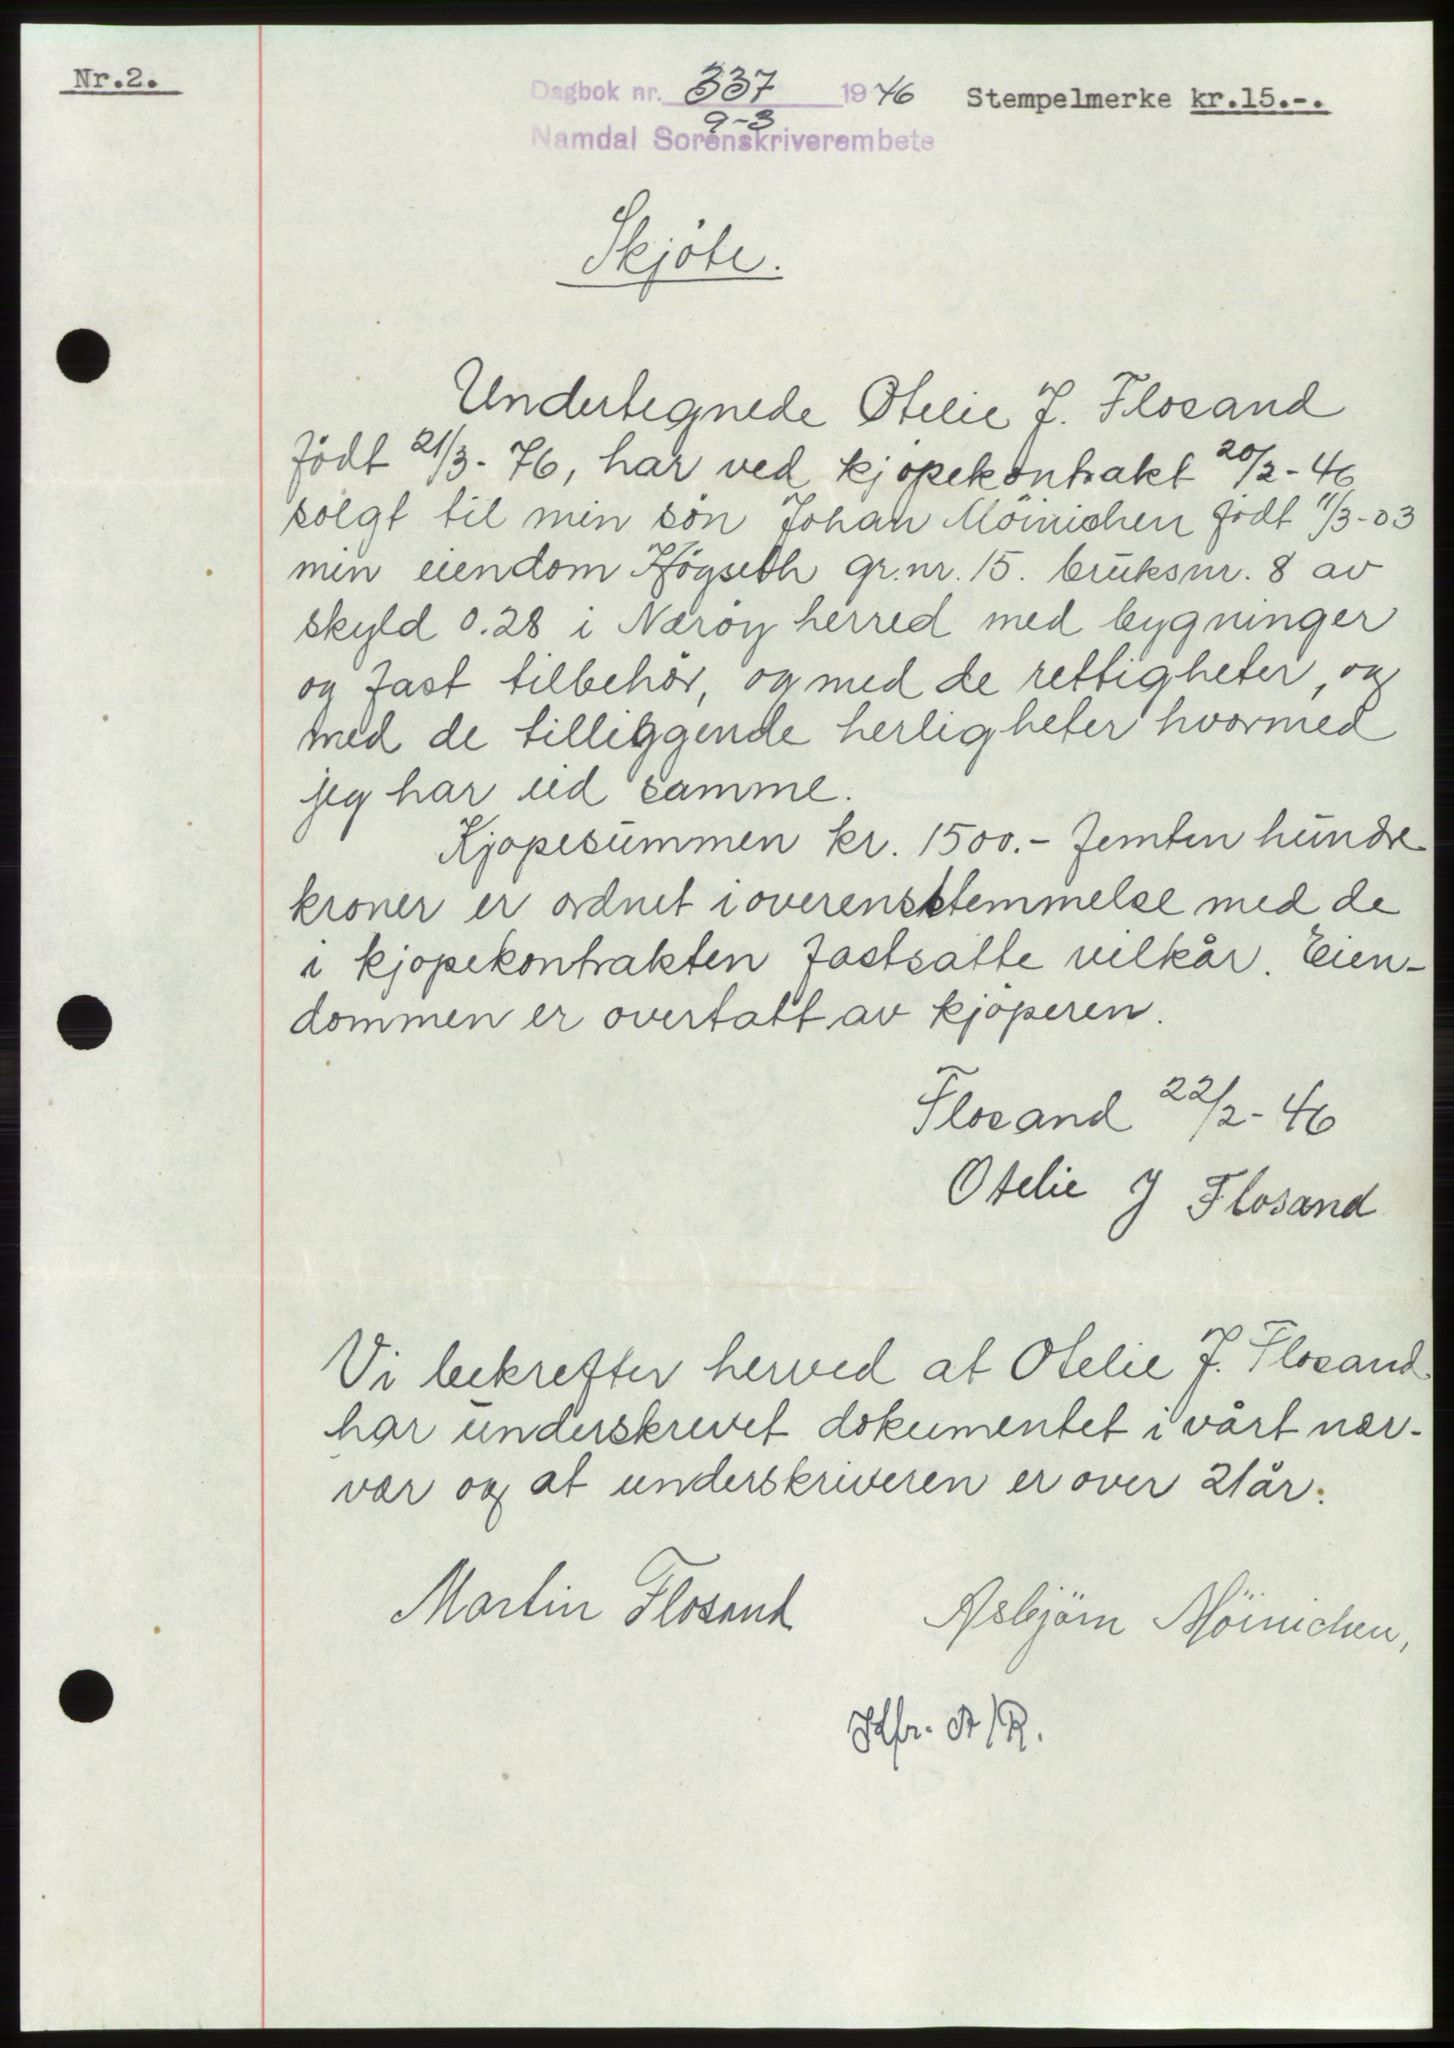 Nr.2.
Dagbok nr. 337 1946 Stempelmerke kr.15.-.
9-3
Namdal Sorenskriverembete
Skjöte.
Undertegnede Otelie J. Flosand
födt 21/3-76, har ved kjøpekontrakt 20/2-46
solgt til min sön Johan Möinichen födt 11/3-03
min eiendom Högseth gr.nr. 15. bruksnr. 8 av
skyld 0.28 i Næröy herred med bygninger
og fast tilbehör, og med de rettigheter, og
med de tilliggende herligheter hvormed
jeg har eid samme.
Kjøpesummen kr. 1500.- femten hundre
kroner er ordnet i overensstemmelse med de
i kjøpekontrakten fastsatte vilkår. Eien-
dommen er overtatt av kjöperen.
Flosand 22/2-46
Otelie J Flosand
Vi bekrefter herved at Otelie J. Flosand
har underskrevet dokumentet i vårt nær-
vær og at underskriveren er over 21 år.
Martin Flosand Asbjörn Möinichen,
Kfr. A/R.